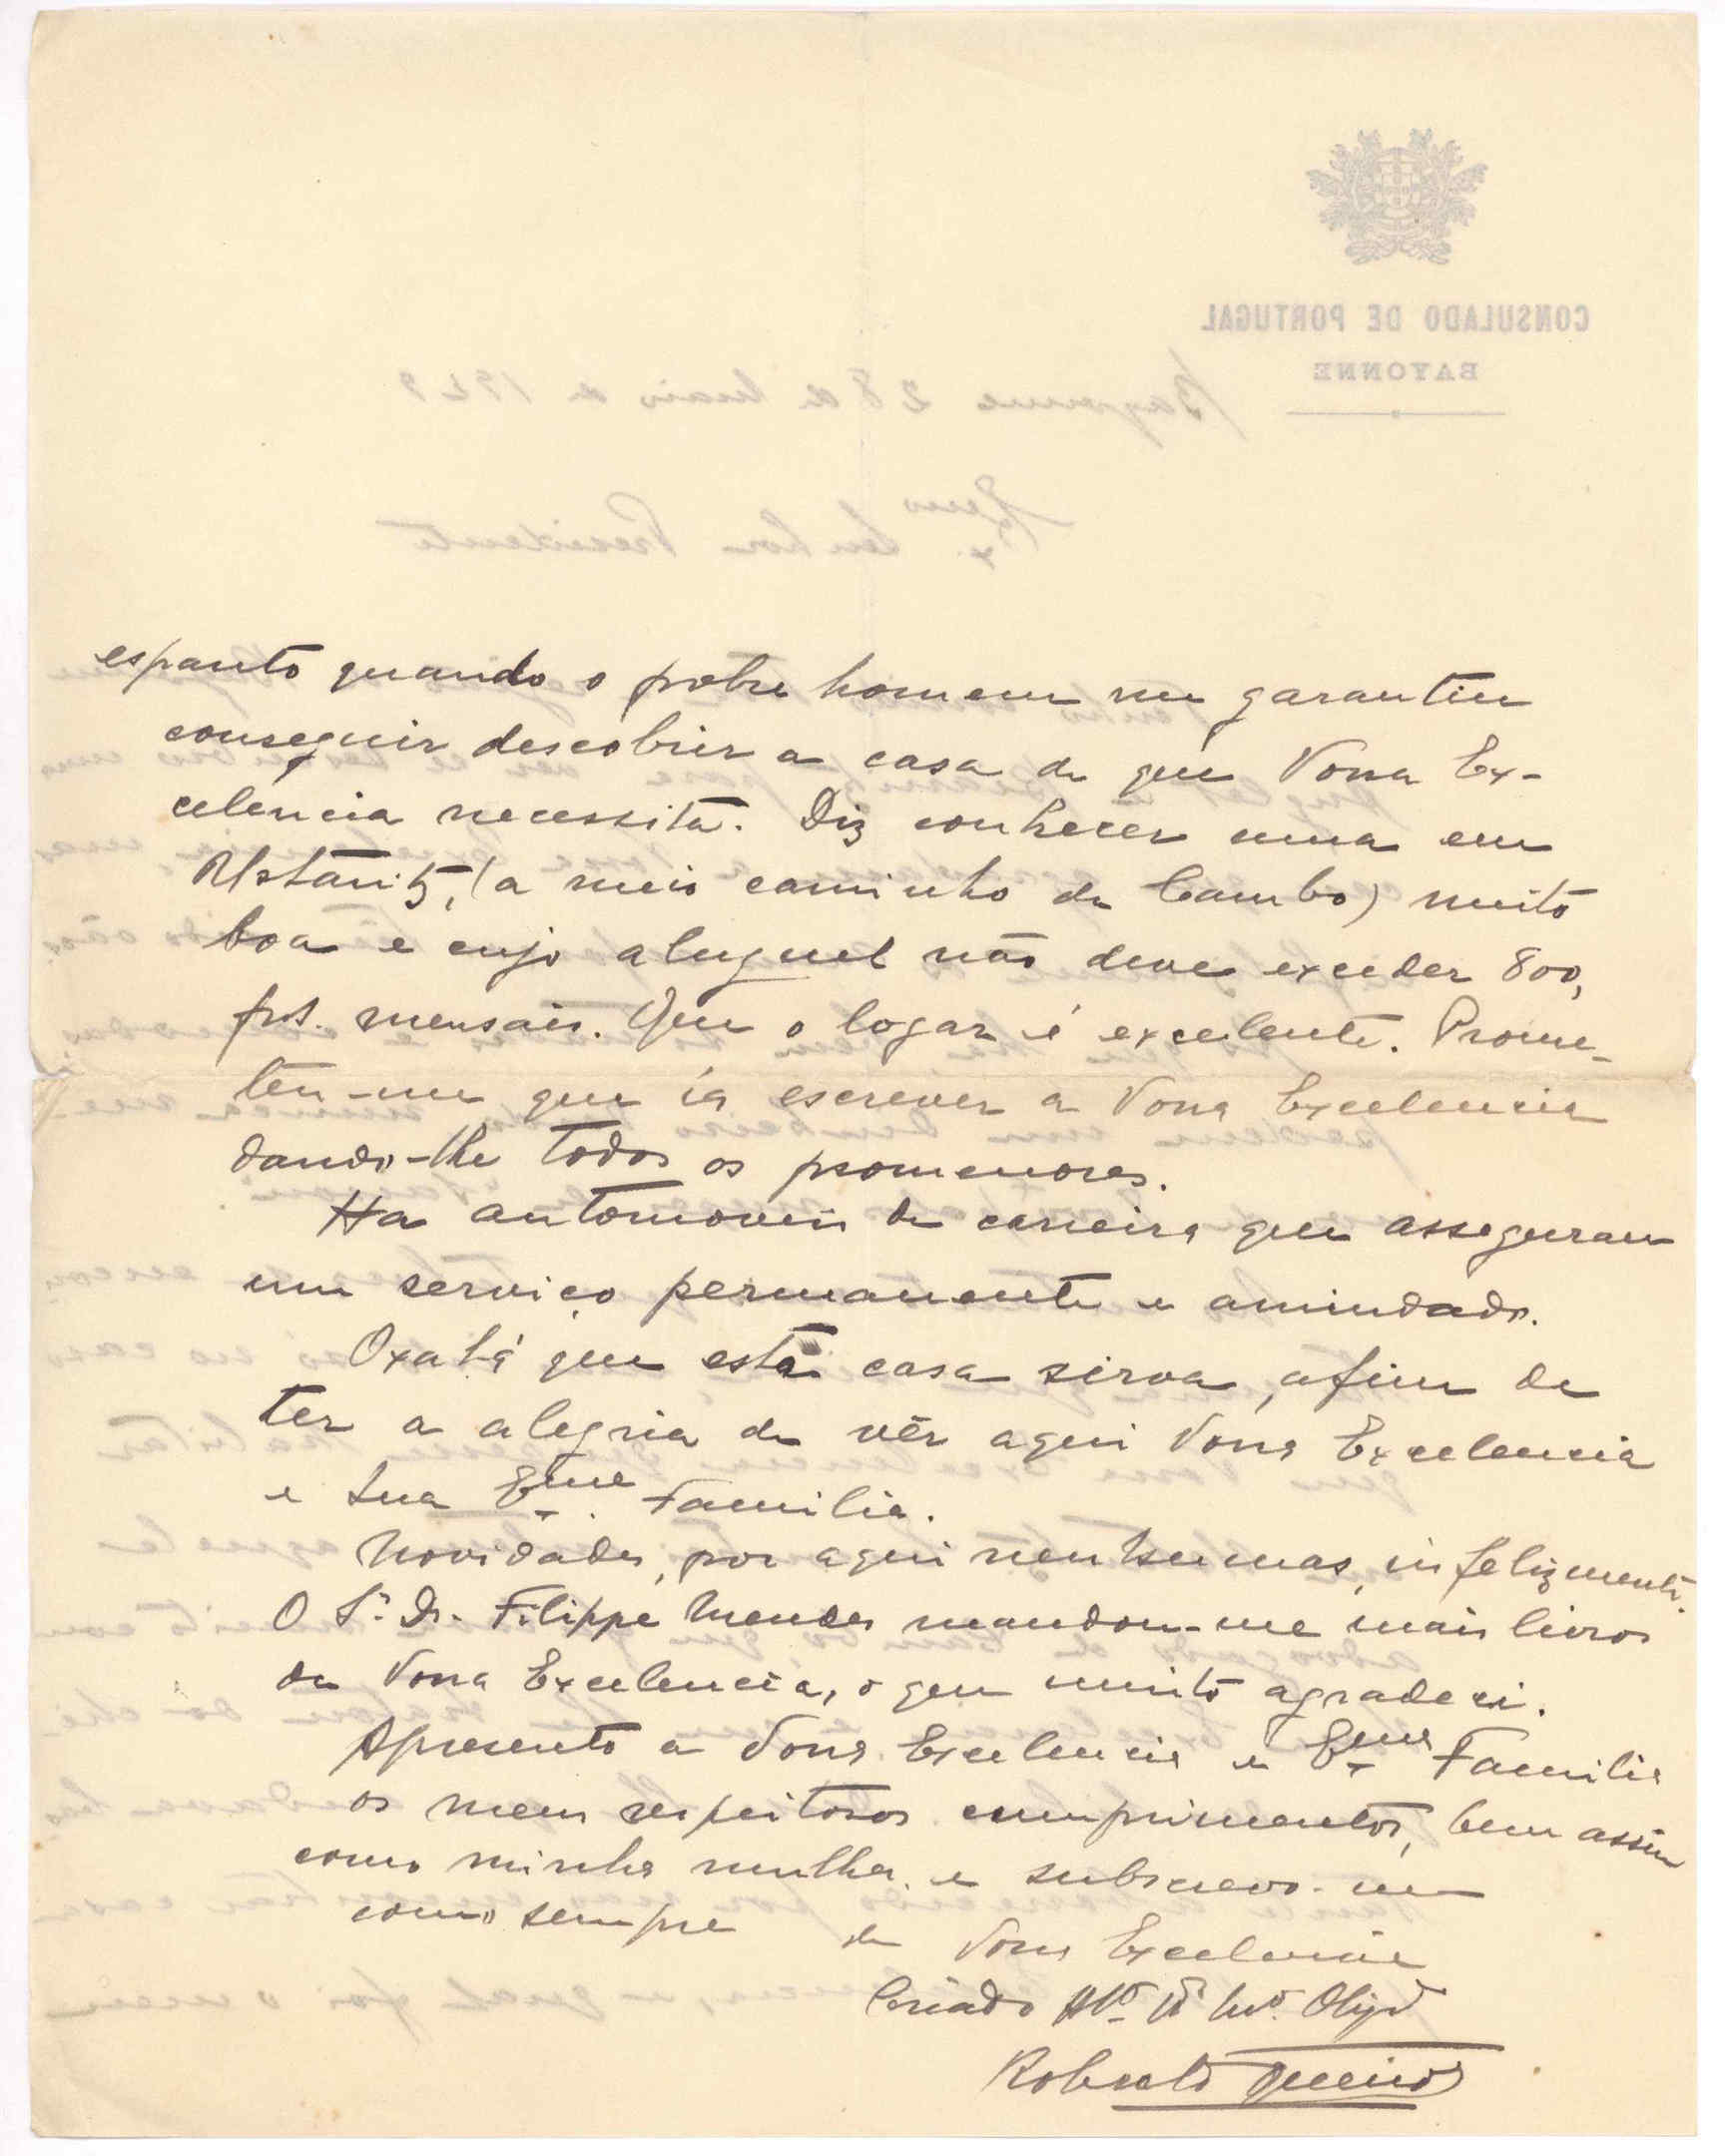 CONSULADO DE PORTUGAL
BAYONNE
Bayonne 28 de Maio de 1929
Exmo Senhor Presidente
espanto quando o pobre homem me garantiu
conseguir descobrir a casa de que Vossa Ex-
celencia necessita. Diz conhecer uma em
Ustaritz, (a meio caminho de Cambo) muito
boa e cujo aluguel não deve exceder 800,
frs. mensais. Que o logar é excelente. Prome-
teu-me que ia escrever a Vossa Excelencia
dando-lhe todos os promenores.
Ha automoveis de carreira que asseguram
um serviço permanente e amiudado.
Oxalá que esta casa sirva, afim de
ter a alegria de vêr aqui Vossa Excelencia
e Sua Exma Familia.
Novidades, por aqui nenhumas, infelizmente.
O Sr. Dr. Filippe Mendes mandou-me mais livros
de Vossa Excelencia, o que muito agradeci.
Apresento a Vossa Excelencia e Exma Familia
os meus respeitosos cumprimentos, bem assim
como minha mulher. e subscrevo-me
como sempre de Vossa Excelencia
Criado Mto Obgdo
Roberto Queiroz